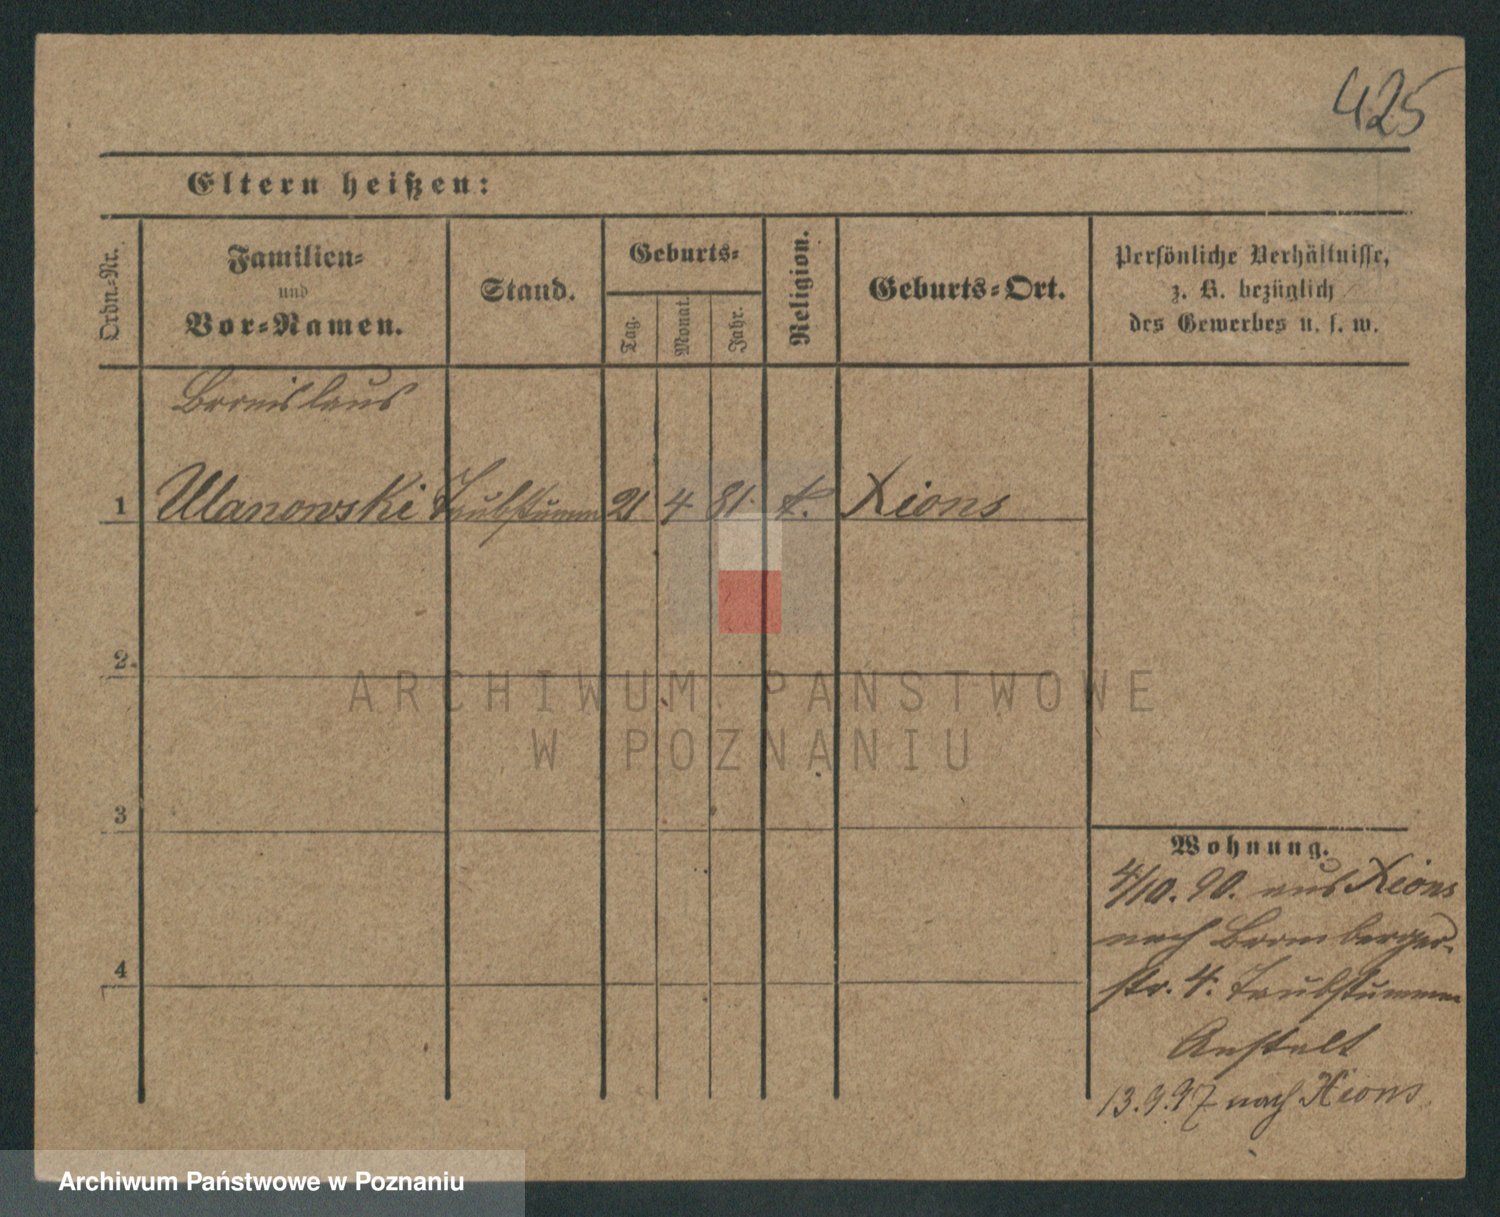 425
Eltern heißen:
Ordn.-Nr.
Familien-
und
Vor-Namen.
Stand.
Geburts-
Tag.
Monat.
Jahr.
Religion.
Geburts-Ort.
Persönliche Verhältnisse,
z. B. bezüglich
des Gewerbes u. s. w.
Bronislaus
1 Ulanowski Taubstumm 21 4. 81. k. Xions
2.
3
4
Wohnung.
4/10. 90. aus Xions
nach Bromberger-
str. 4. Taubstummen
Anstalt
13.9.97 nach Xions
ARCHIWUM PAŃSTWOWE
W POZNANIU
Archiwum Państwowe w Poznaniu